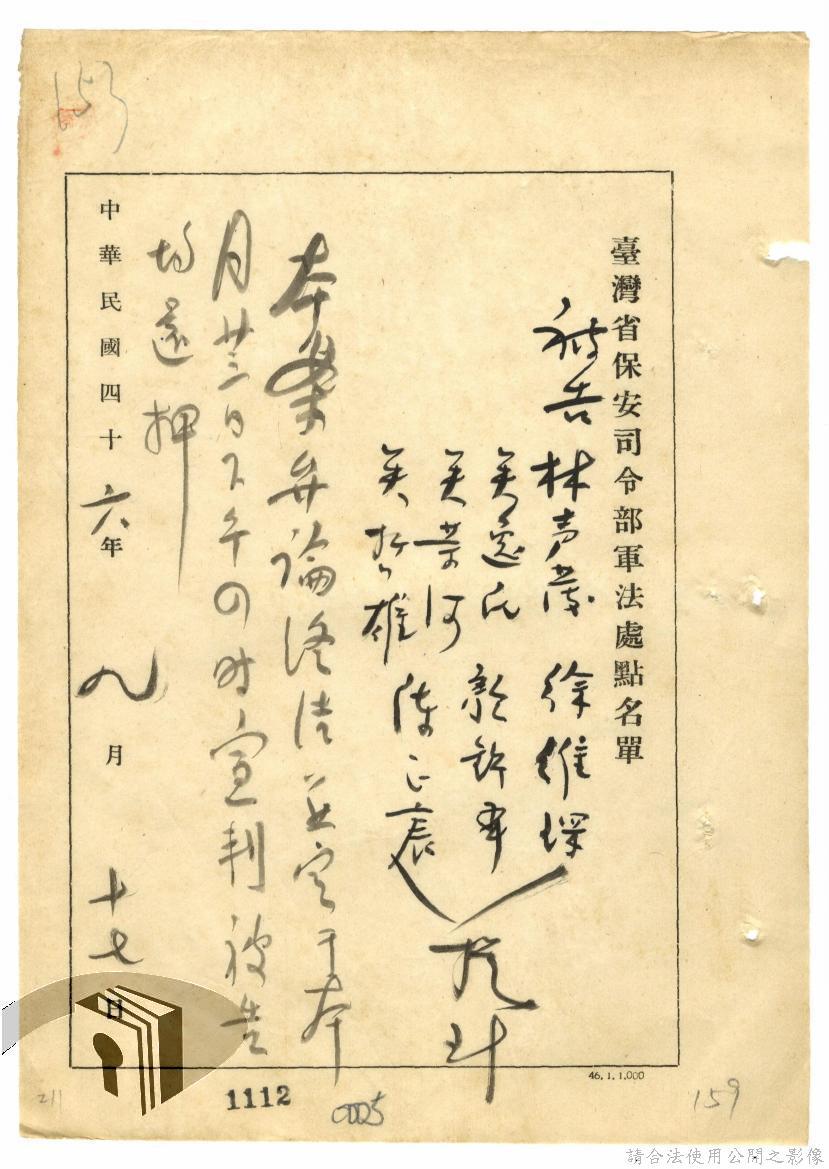 臺灣省保安司令部軍法處點名單
被告 林声發 徐維琛
吳逸民
吳崇河
吳哲雄 陳正宸
本案弁論終結並定于本
月廿三日下午四時宣判被告
均還押
中華民國四十六年九月十七日
46.1.1,000
1112
0005
159
211
請合法使用公開之影像